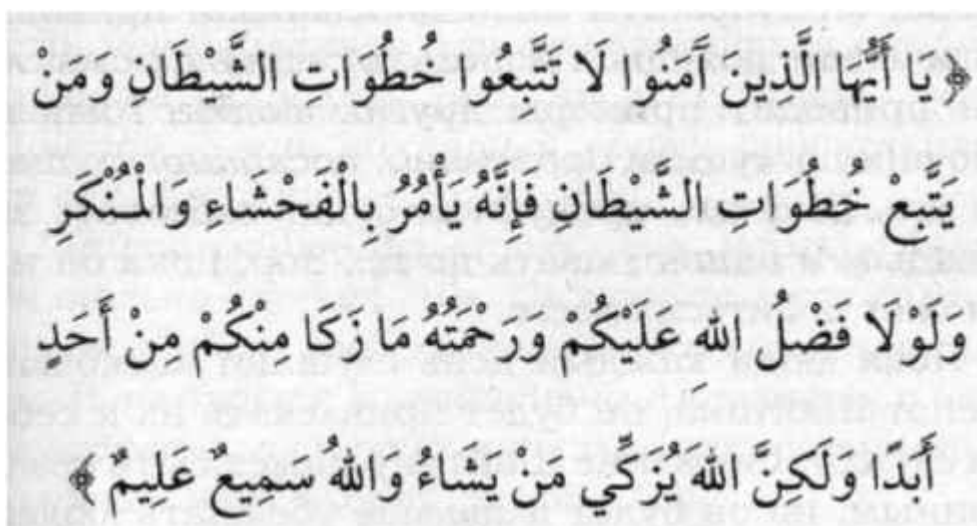 ﴿ يَا أَيُّهَا الَّذِينَ آمَنُوا لَا تَتَّبِعُوا خُطُوَاتِ الشَّيْطَانِ ومَنْ
يَتَّبِعْ خُطُوَاتِ الشَّيْطَانِ فَإِنَّهُ يَأْمُرُ بِالْفَحْشَاءِ وَالْمُنْكَرِ
وَلَوْلَا فَضْلُ اللهِ عَلَيْكُمْ وَرَحْمَتُهُ مَا زَكَا مِنْكُمْ مِنْ أَحَدٍ
أَبَدًا وَلَكِنَّ اللهَ يُزَكِّي مَنْ يَشَاءُ وَاللهُ سَمِيعٌ عَلِيمٌ ﴾